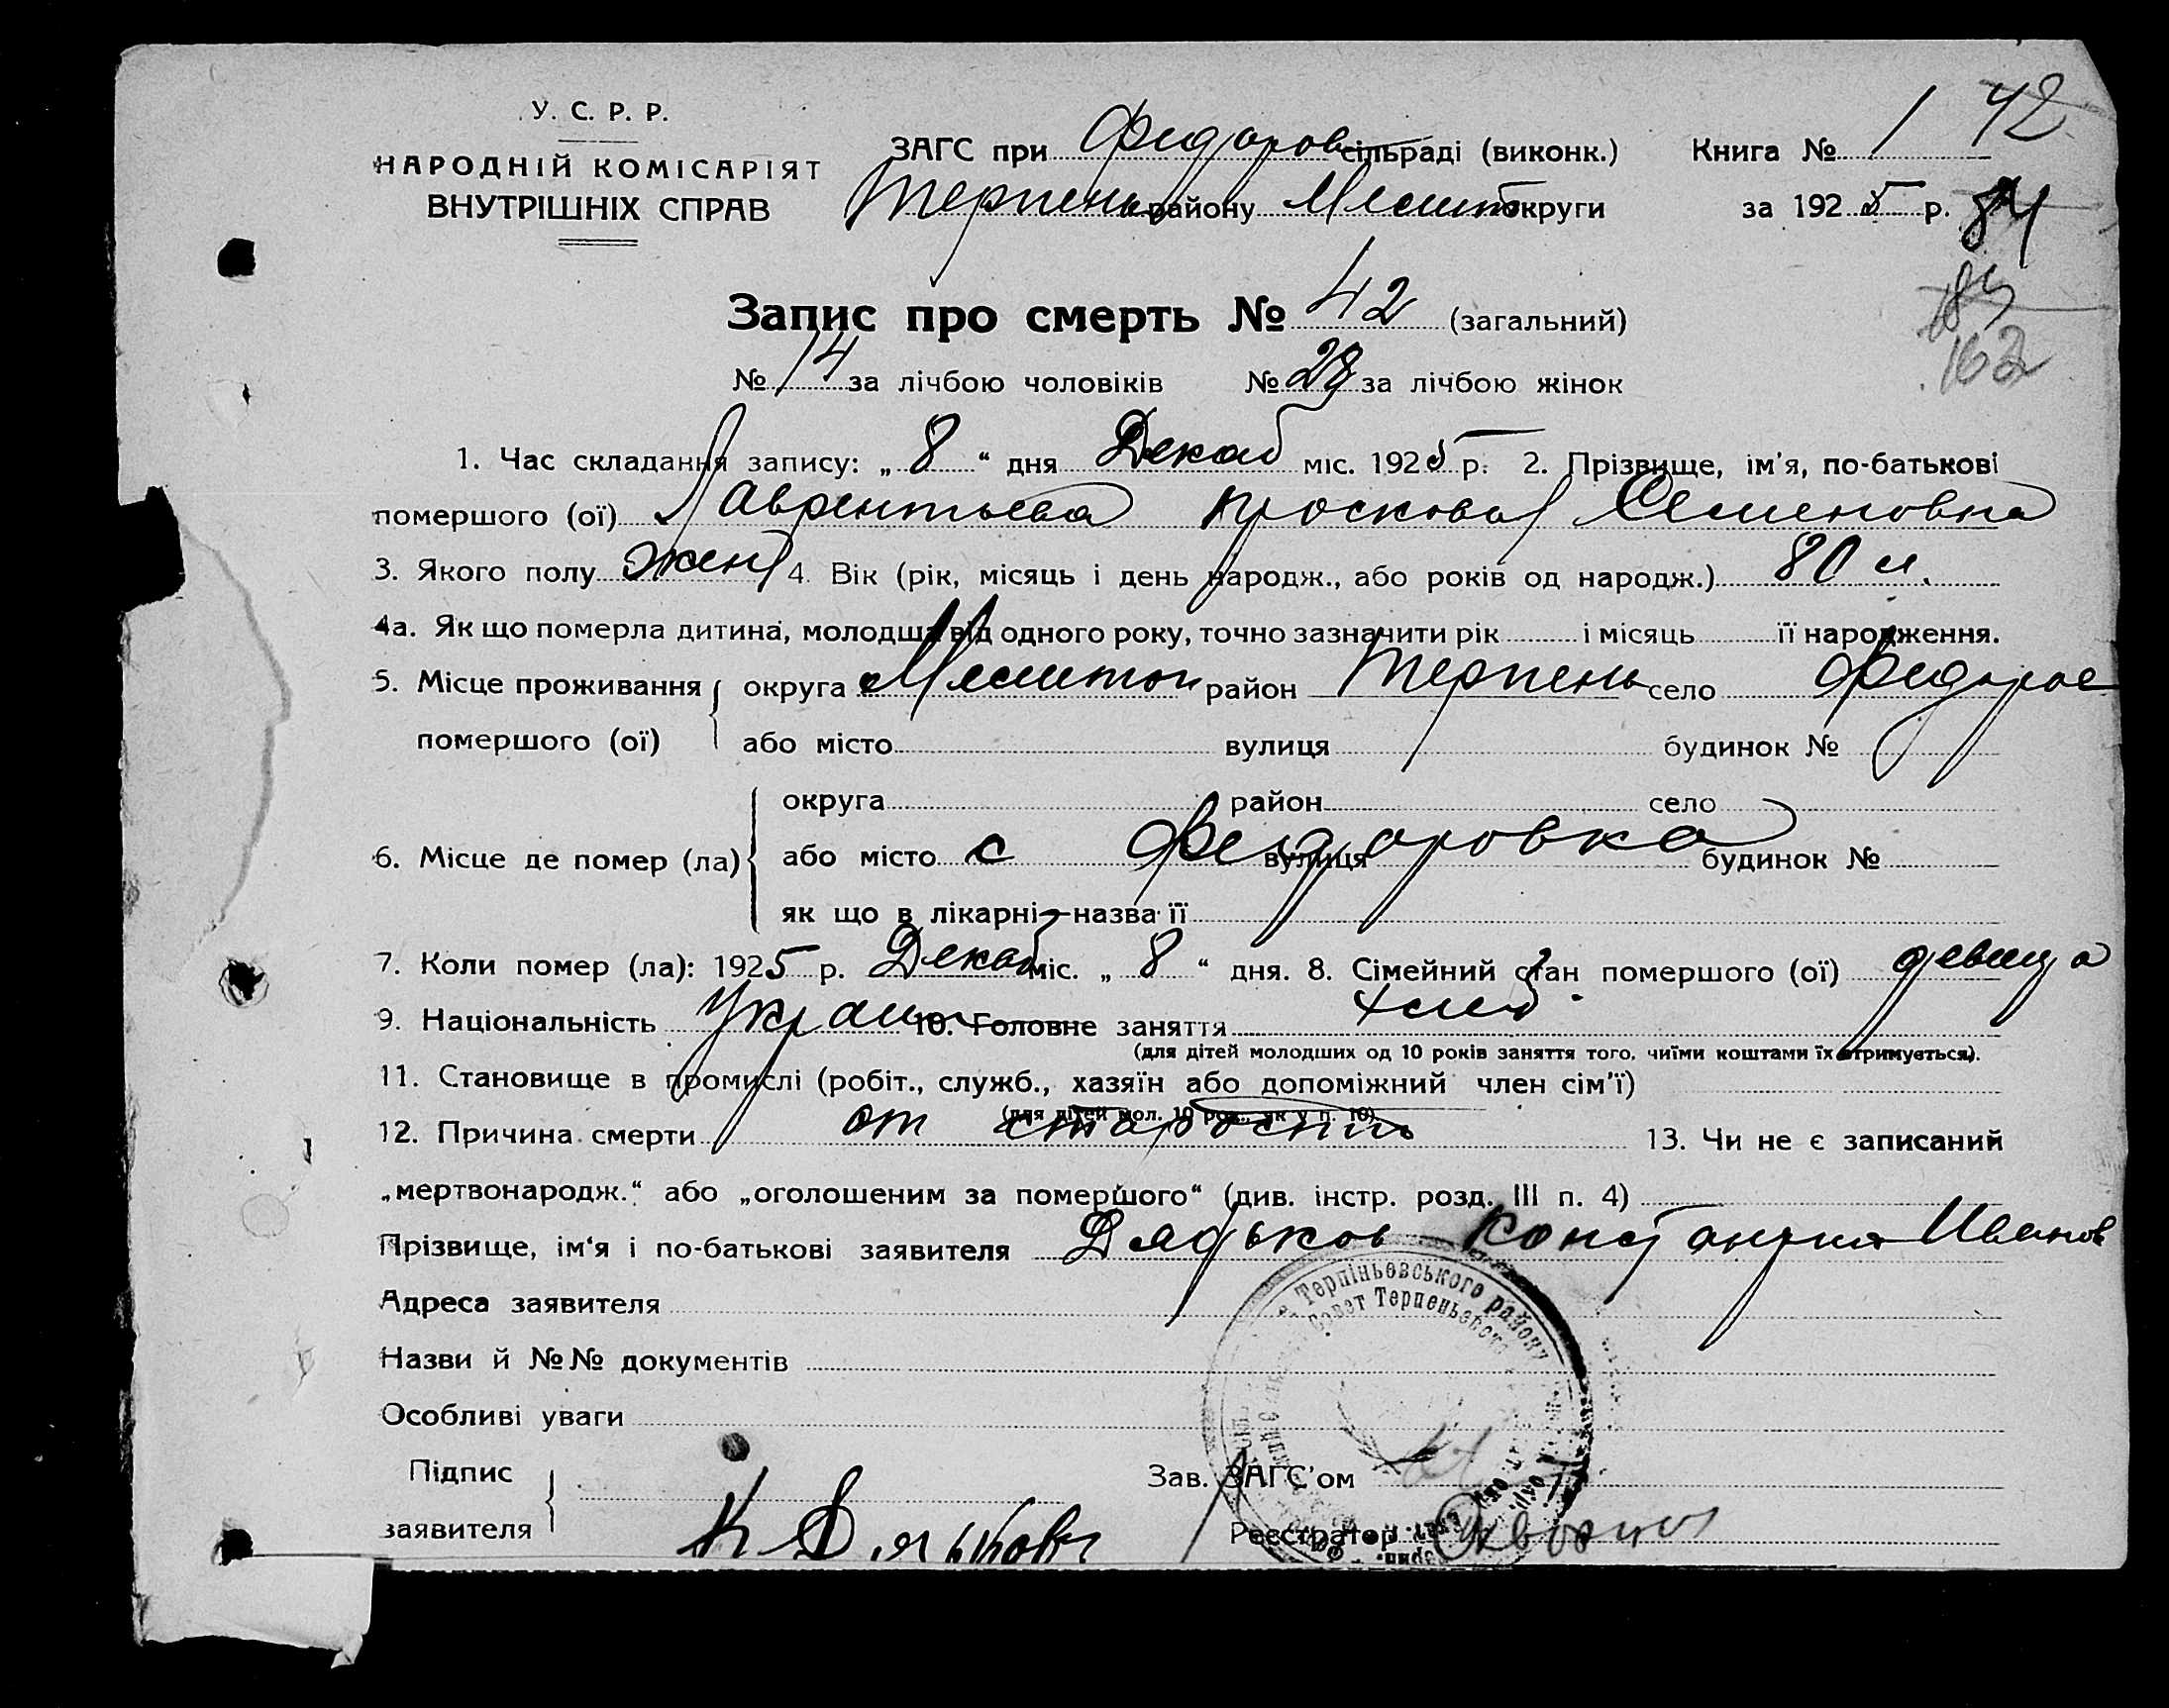 У. С. Р. Р.
НАРОДНІЙ КОМІСАРІЯТ
ВНУТРІШНІХ СПРАВ
ЗАГС при Федоров сільраді (виконк.) Книга № 1 42
Терпень району Мелит округи за 1925 р. 84
162
Запис про смерть № 42 (загальний)
№ 14 за лічбою чоловіків № 28 за лічбою жінок
1. Час складання запису: „ 8 “ дня Декаб міс. 1925 р. 2. Прізвище, ім'я, по-батькові
помершого (ої) Лаврентьева Просковья Семеновна
3. Якого полу жен 4. Вік (рік, місяць і день народж., або років од народж.) 80 л.
4а. Як що померла дитина, молодша від одного року, точно зазначити рік і місяць її народження.
5. Місце проживання округа Мелитоп район Терпень село Федоров
помершого (ої) або місто вулиця будинок №
округа район село
6. Місце де помер (ла) або місто с Федоровка вулиця будинок №
як що в лікарні—назва її
7. Коли помер (ла): 1925 р. Декаб міс. „ 8 “ дня. 8. Сімейний стан помершого (ої) девица
9. Національність Украин 10. Головне заняття хлеб.
(для дітей молодших од 10 років заняття того, чиїми коштами їх отримується).
11. Становище в промислі (робіт., служб., хазяїн або допоміжний член сім'ї)
(для дітей мол. 10 рок., як у п. 10)
12. Причина смерти от старости 13. Чи не є записаний
„мертвонародж.“ або „оголошеним за помершого“ (див. інстр. розд. III п. 4)
Прізвище, ім'я і по-батькові заявителя Дядьков Константин Иванов
Адреса заявителя
Назви й №№ документів
Особливі уваги
Підпис
заявителя К Дядьков
Зав. ЗАГС'ом
Реєстратор
Терпіньевського району
Совет Терпеньевского